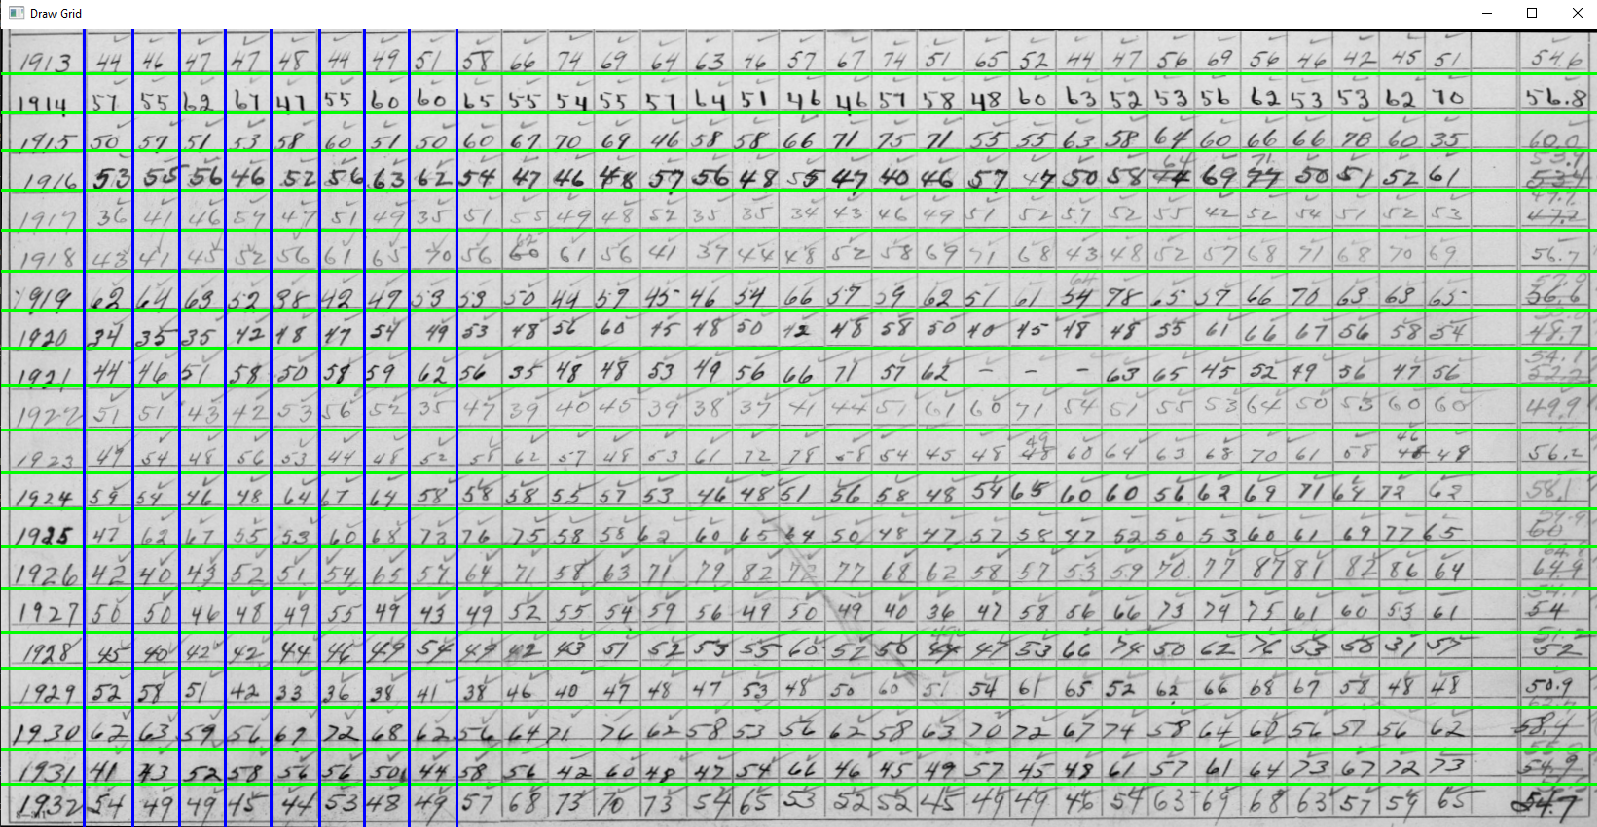 Draw Grid
1913 44 46 47 47 48 44 49 51 58 66 74 69 64 63 46 57 67 74 51 65 52 44 47 56 69 56 46 42 45 51 54.6
1914 57 55 62 67 47 55 60 60 65 55 54 55 57 64 51 46 46 57 58 48 60 63 52 53 56 62 53 53 62 70 56.8
1915 50 57 51 53 58 60 51 50 60 67 70 69 46 58 58 66 71 75 71 55 55 63 58 64 60 66 66 70 60 35 60.0
1916 53 55 56 46 52 56 63 62 54 47 46 48 57 56 48 55 47 40 46 57 47 50 58 64 69 71 50 51 52 61 53.4
1917 36 41 46 57 47 51 49 35 51 55 49 48 52 35 35 34 43 46 49 51 52 57 52 55 42 52 54 51 52 53 47.2
1918 43 41 45 52 56 61 65 70 56 60 61 56 41 37 44 48 52 58 69 71 68 43 48 52 57 68 71 68 70 69 56.7
1919 62 64 63 52 38 42 49 53 53 50 44 57 45 46 54 66 57 59 62 51 61 64 54 78 65 57 66 70 63 63 65 56.6
1920 34 35 35 42 48 47 54 49 53 48 56 60 45 48 50 42 48 58 50 40 45 48 48 55 61 66 67 56 58 54 48.7
1921 44 46 51 58 50 58 59 62 56 35 48 48 53 49 56 66 71 57 62 - - - 63 65 45 52 49 56 47 56 54.1
1922 51 51 43 42 53 56 52 35 47 39 40 45 39 38 37 41 44 51 61 60 71 54 51 55 53 64 50 53 60 60 49.9
1923 49 54 48 56 53 44 48 52 58 62 57 48 53 61 72 78 58 54 45 48 49 48 60 64 63 68 70 61 58 46 49 56.2
1924 59 54 46 48 64 67 64 58 58 58 55 57 53 46 48 51 56 58 48 54 65 60 60 56 62 69 71 64 72 62 58.1
1925 47 62 67 55 53 60 68 73 76 75 58 58 62 60 65 64 50 48 47 57 58 47 52 50 53 60 61 69 77 65 60
1926 42 40 43 52 51 54 65 57 64 71 58 63 71 79 82 72 77 68 62 58 57 53 59 70 77 87 81 82 86 64 64.9
1927 50 50 46 48 49 55 49 43 49 52 55 54 59 56 49 50 49 40 36 47 58 56 66 73 74 75 61 60 53 61 54
1928 45 40 42 42 44 46 49 54 49 42 43 51 52 53 55 60 52 50 49 47 53 66 74 50 62 76 53 58 31 57 52
1929 52 58 51 42 33 36 38 41 38 46 40 47 48 47 53 48 50 60 51 54 61 65 52 62 66 68 67 58 48 48 50.9
1930 62 63 59 56 67 72 68 62 56 64 71 76 62 58 53 56 62 58 63 70 72 67 74 58 64 60 56 57 56 62 58.4
1931 41 43 52 58 56 56 50 44 58 56 42 60 48 47 54 66 46 45 49 57 45 48 61 57 61 64 73 67 72 73 54.9
1932 54 49 49 45 44 53 48 49 57 68 73 70 73 54 65 53 52 52 45 49 49 46 54 63 69 68 63 57 59 65 54.7